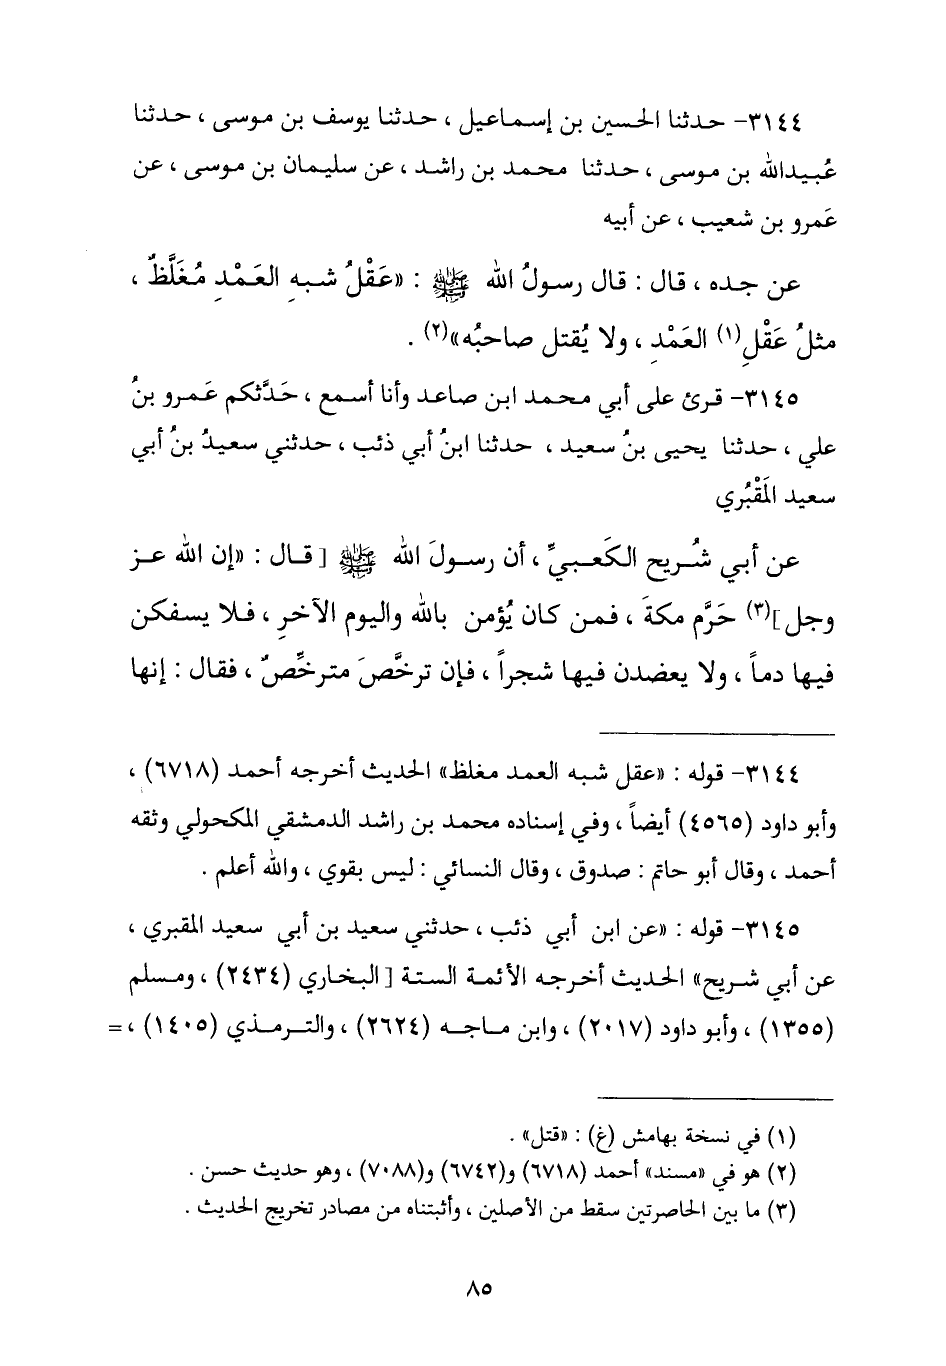 ٣١٤٤- حدثنا الحسين بن إسماعيل ، حدثنا يوسف بن موسى ، حدثنا
عُبيدالله بن موسى ، حدثنا محمد بن راشد ، عن سليمان بن موسى ، عن
عَمرو بن شعيب ، عن أبيه
عن جده ، قال : قال رسولُ الله ﷺ : «عَقْلُ شبهِ العَمْدِ مُغَلَّظٌ ،
مثلُ عَقْلِ(١) العَمْدِ ، ولا يُقتل صاحبُه»(٢) .
٣١٤٥- قرئ على أبي محمد ابن صاعد وأنا أسمع ، حَدَّثكم عَمرو بنُ
علي ، حدثنا يحيى بنُ سعيد ، حدثنا ابنُ أبي ذئب ، حدثني سعيدُ بنُ أبي
سعيد المَقْبُري
عن أبي شُريح الكَعبيِّ ، أن رسولَ الله ﷺ [ قال : «إن الله عز
وجل](٣) حَرَّم مكةَ ، فمن كان يُؤمن بالله واليوم الآخرِ ، فلا يسفكن
فيها دماً ، ولا يعضدن فيها شجراً ، فإن ترخَّصَ مترخِّصٌ ، فقال : إنها
٣١٤٤- قوله : «عقل شبه العمد مغلظ» الحديث أخرجه أحمد (٦٧١٨) ،
وأبو داود (٤٥٦٥) أيضاً ، وفي إسناده محمد بن راشد الدمشقي المكحولي وثقه
أحمد ، وقال أبو حاتم : صدوق ، وقال النسائي : ليس بقوي ، والله أعلم .
٣١٤٥- قوله : «عن ابن أبي ذئب ، حدثني سعيد بن أبي سعيد المقبري ،
عن أبي شريح» الحديث أخرجه الأئمة الستة [ البخاري (٢٤٣٤) ، ومسلم
(١٣٥٥) ، وأبو داود (٢٠١٧) ، وابن ماجه (٢٦٢٤) ، والترمذي (١٤٠٥) ، =
(١) في نسخة بهامش (غ) : «قتل» .
(٢) هو في «مسند» أحمد (٦٧١٨) و(٦٧٤٢) و(٧٠٨٨) ، وهو حديث حسن .
(٣) ما بين الحاصرتين سقط من الأصلين ، وأثبتناه من مصادر تخريج الحديث .
٨٥